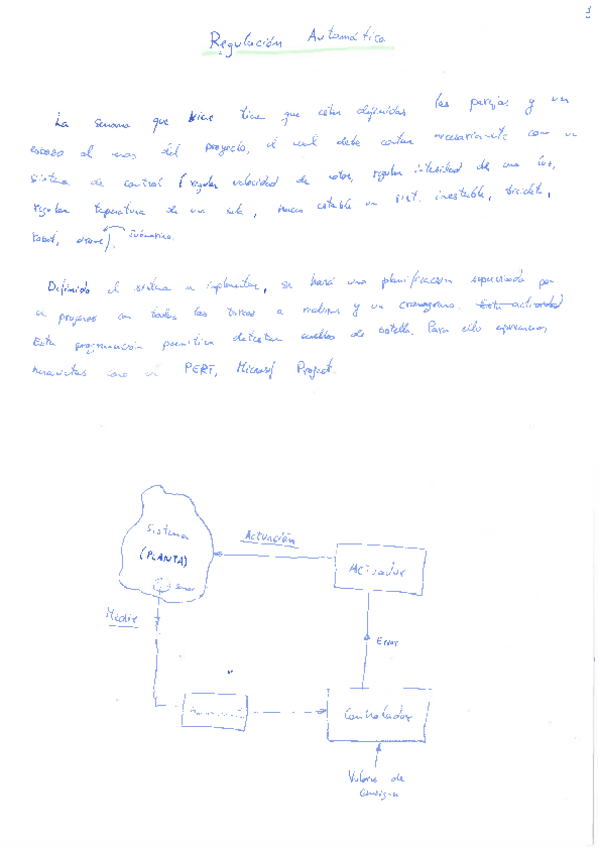 1
Regulación Automática
La semana que viene tiene que estar definidas las parejas y un
esbozo al menos del proyecto, el cual debe contar necesariamente con un
sistema de control (regular velocidad de motor, regular intensidad de una luz,
regular temperatura de un sala, hacer estable un sist. inestable, bicicleta,
robot, drone). submarino.
Definido el sistema a implementar, se hará una planificación supervisada por
el profesor con todas las tareas a realizar y un cronograma. Esta actividad
Esta programación permitira detectar cuellos de botella. Para ello usaremos
herramientas como el PERT, Microsoft Project.
Sistema
(PLANTA)
Sensor
Actuación
Actuador
Medir
Error
Controlador
Valores de
Consigna